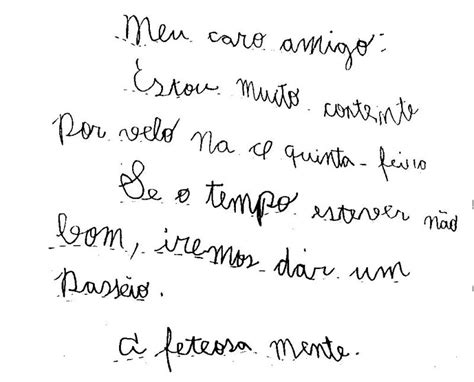 Meu caro amigo:
Estou muito contente
por velo na quinta-feira
Se o tempo estever não
bom, iremos dár um
passéio.
Afeteosa mente.